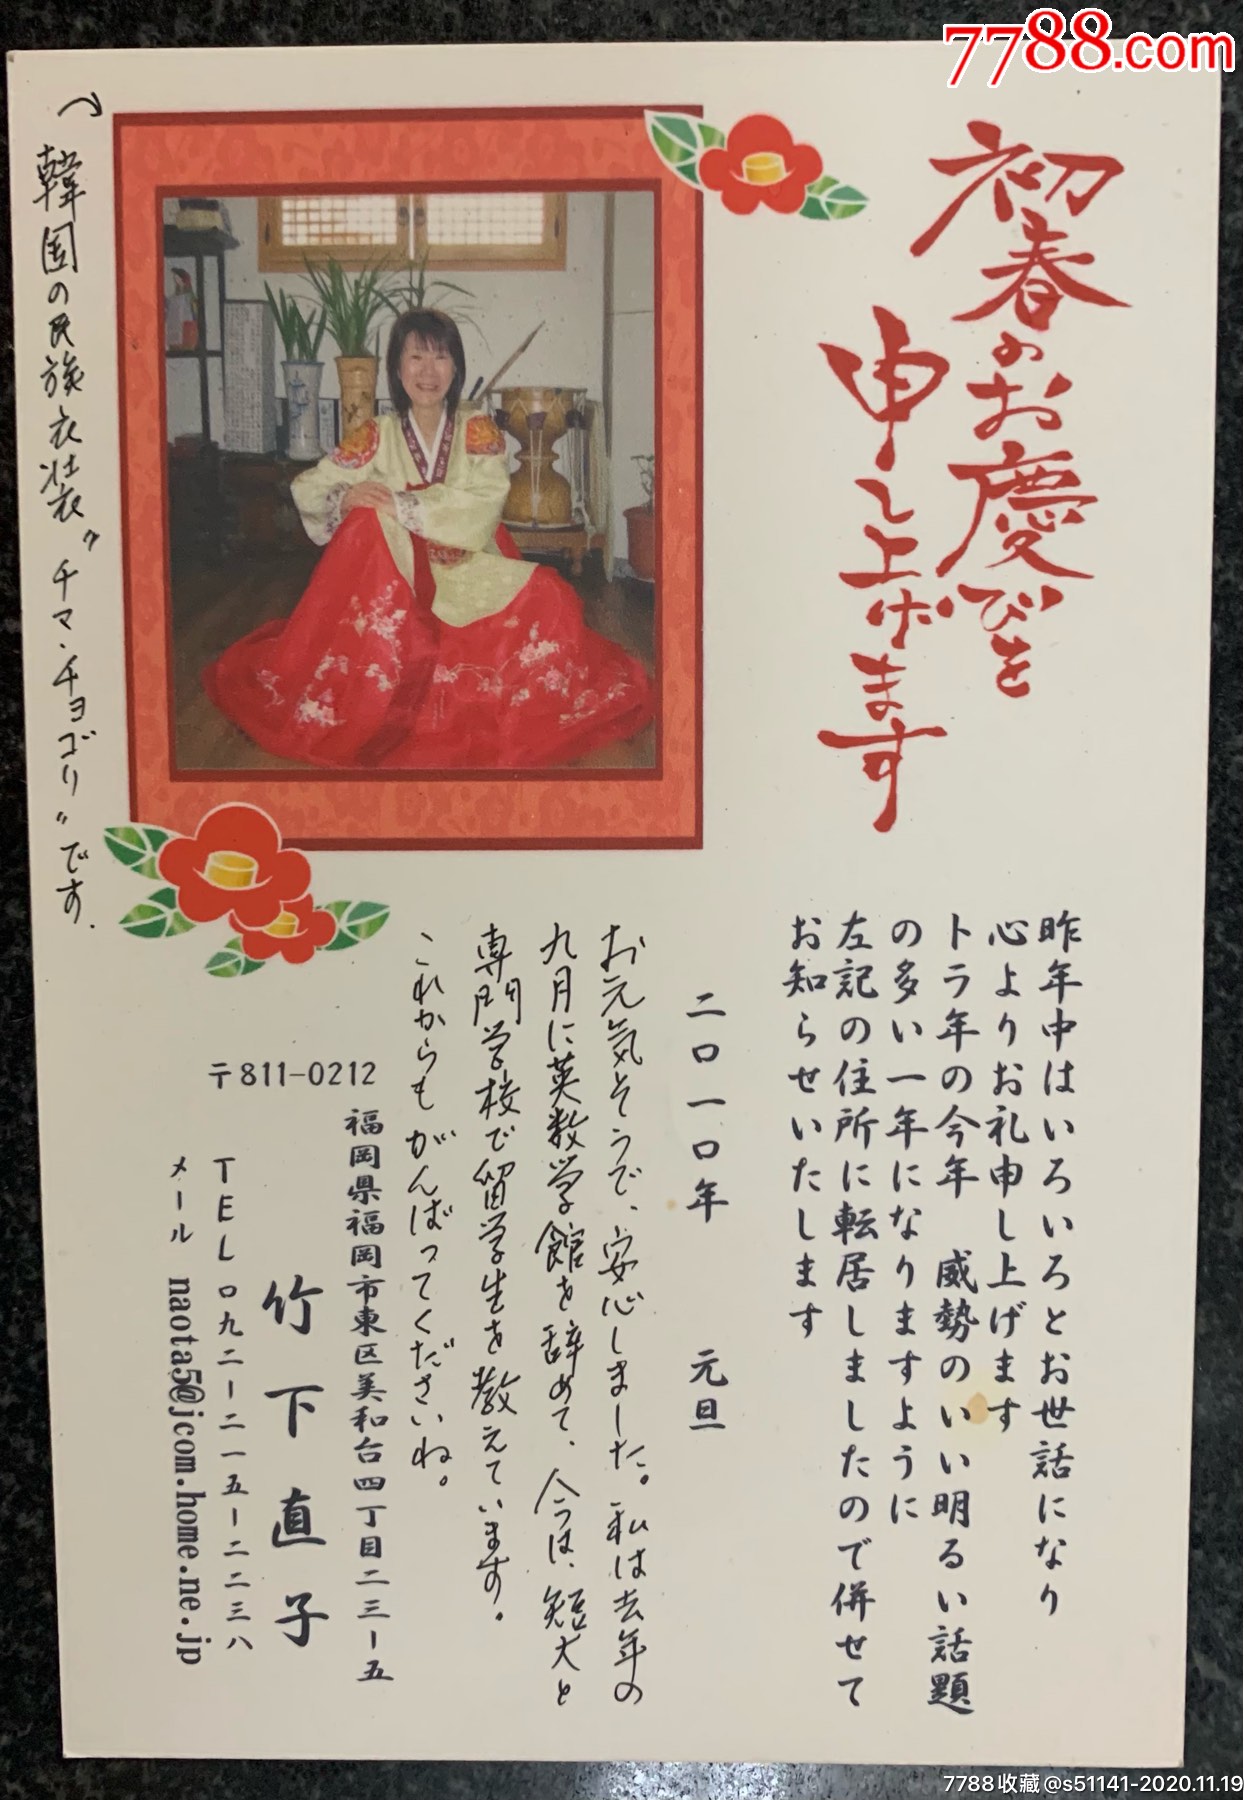 7788.com
初春のお慶びを
申し上げます
昨年中はいろいろとお世話になり
心よりお礼申し上げます
トラ年の今年　威勢のいい明るい話題
の多い一年になりますように
左記の住所に転居しましたので併せて
お知らせいたします
二〇一〇年　元旦
お元気そうで、安心しました。私は去年の
九月に英数学館を辞めて、今は、短大と
専門学校で留学生を教えています。
これからもがんばってくださいね。
〒811-0212
福岡県福岡市東区美和台四丁目二三ー五
竹下直子
TEL 〇九二ー二一五ー二二三八
メール naota5@jcom.home.ne.jp
韓国の民族衣装〝チマ・チョゴリ〟です.
7788收藏@s51141-2020.11.19